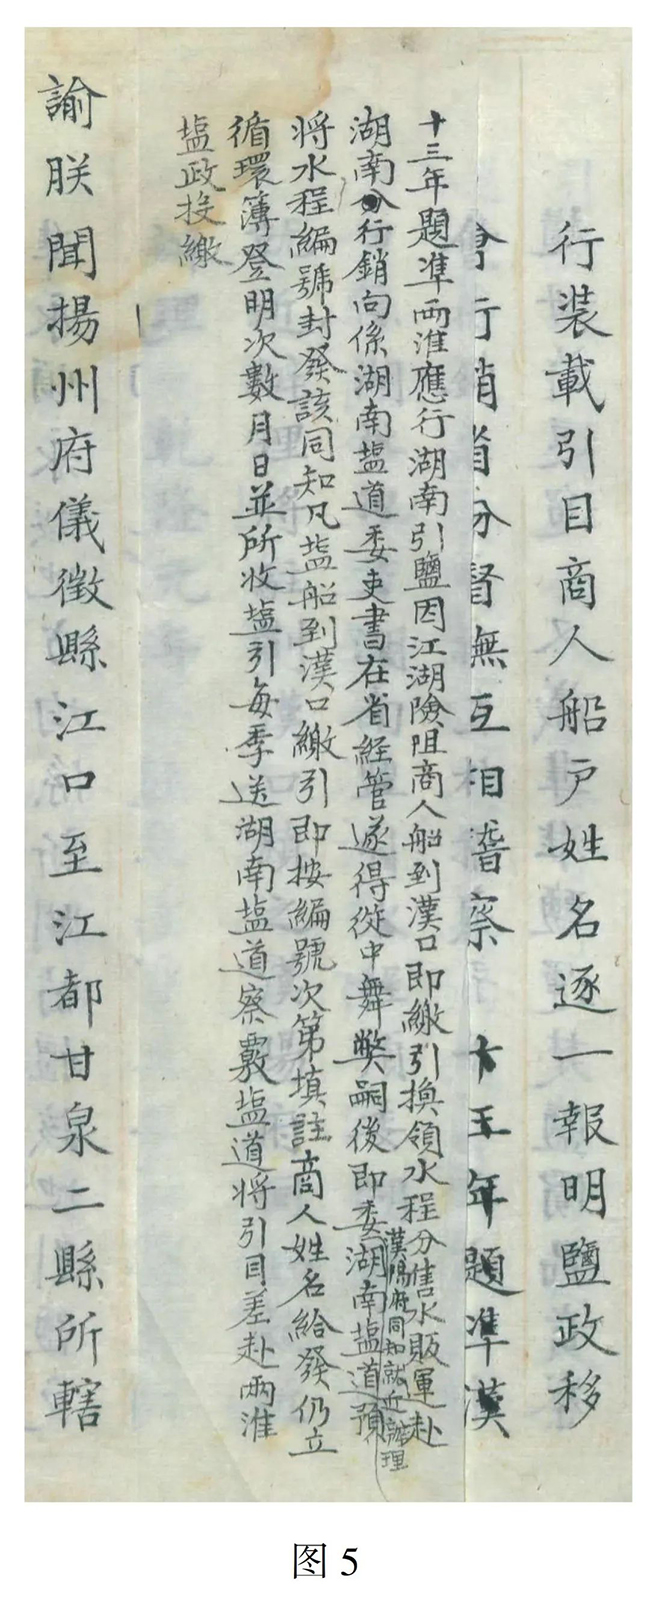 行装載引目商人船戶姓名逐一報明鹽政移
會行銷省分督撫互相稽察　十五年題準漢
十三年題準兩淮應行湖南引鹽因江湖險阻商人船到漢口即繳引換領水程分售水販運赴
湖南分行銷向係湖南塩道委吏書在省經管遂得從中舞弊嗣後即委湖南塩道預
漢陽府同知就近辦理
將水程編號封發該同知凡塩船到漢口繳引即按編號次第填註商人姓名給發仍立
循環簿登明次數月日並所收塩引每季送湖南塩道察覈塩道將引目差赴兩淮
塩政投繳
諭朕聞揚州府儀徵縣江口至江都甘泉二縣所轄
图5